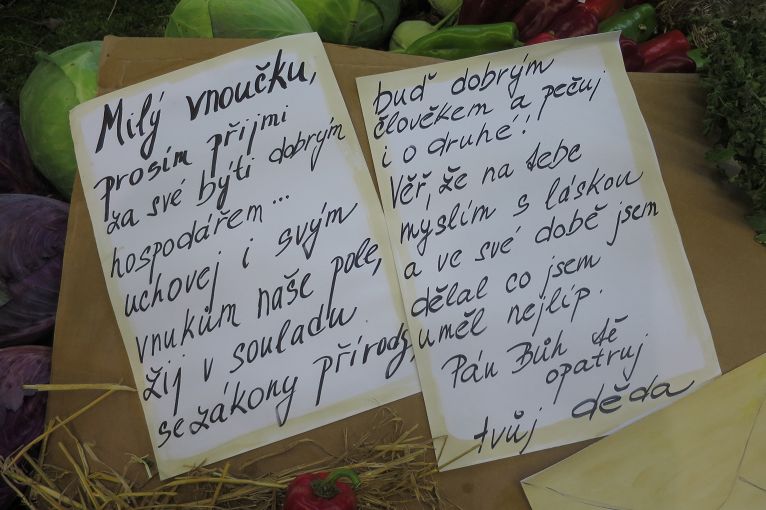 Milý vnoučku,
prosím přijmi
za své býti dobrým
hospodářem...
uchovej i svým
vnukům naše pole,
žij v souladu
se zákony přírody,
buď dobrým
člověkem a pečuj
i o druhé!
Věř, že na tebe
myslím s láskou
a ve své době jsem
dělal co jsem
uměl nejlíp.
Pán Bůh tě
opatruj
tvůj děda